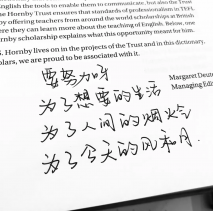 English the tools to enable them to communicate, but also the Trust
the Hornby Trust ensures that standards of professionalism in TEFL
by offering teachers from around the world scholarships at British
where they can learn more about the teaching of English. Below, one
Hornby scholarship explains what this opportunity meant for him.
S. Hornby lives on in the projects of the Trust and in this dictionary.
olars, we are proud to be associated with it.
Margaret Deu
Managing Edi
要努力呀
为了想要的生活
为了人间的烟火
为了今天的风和月.